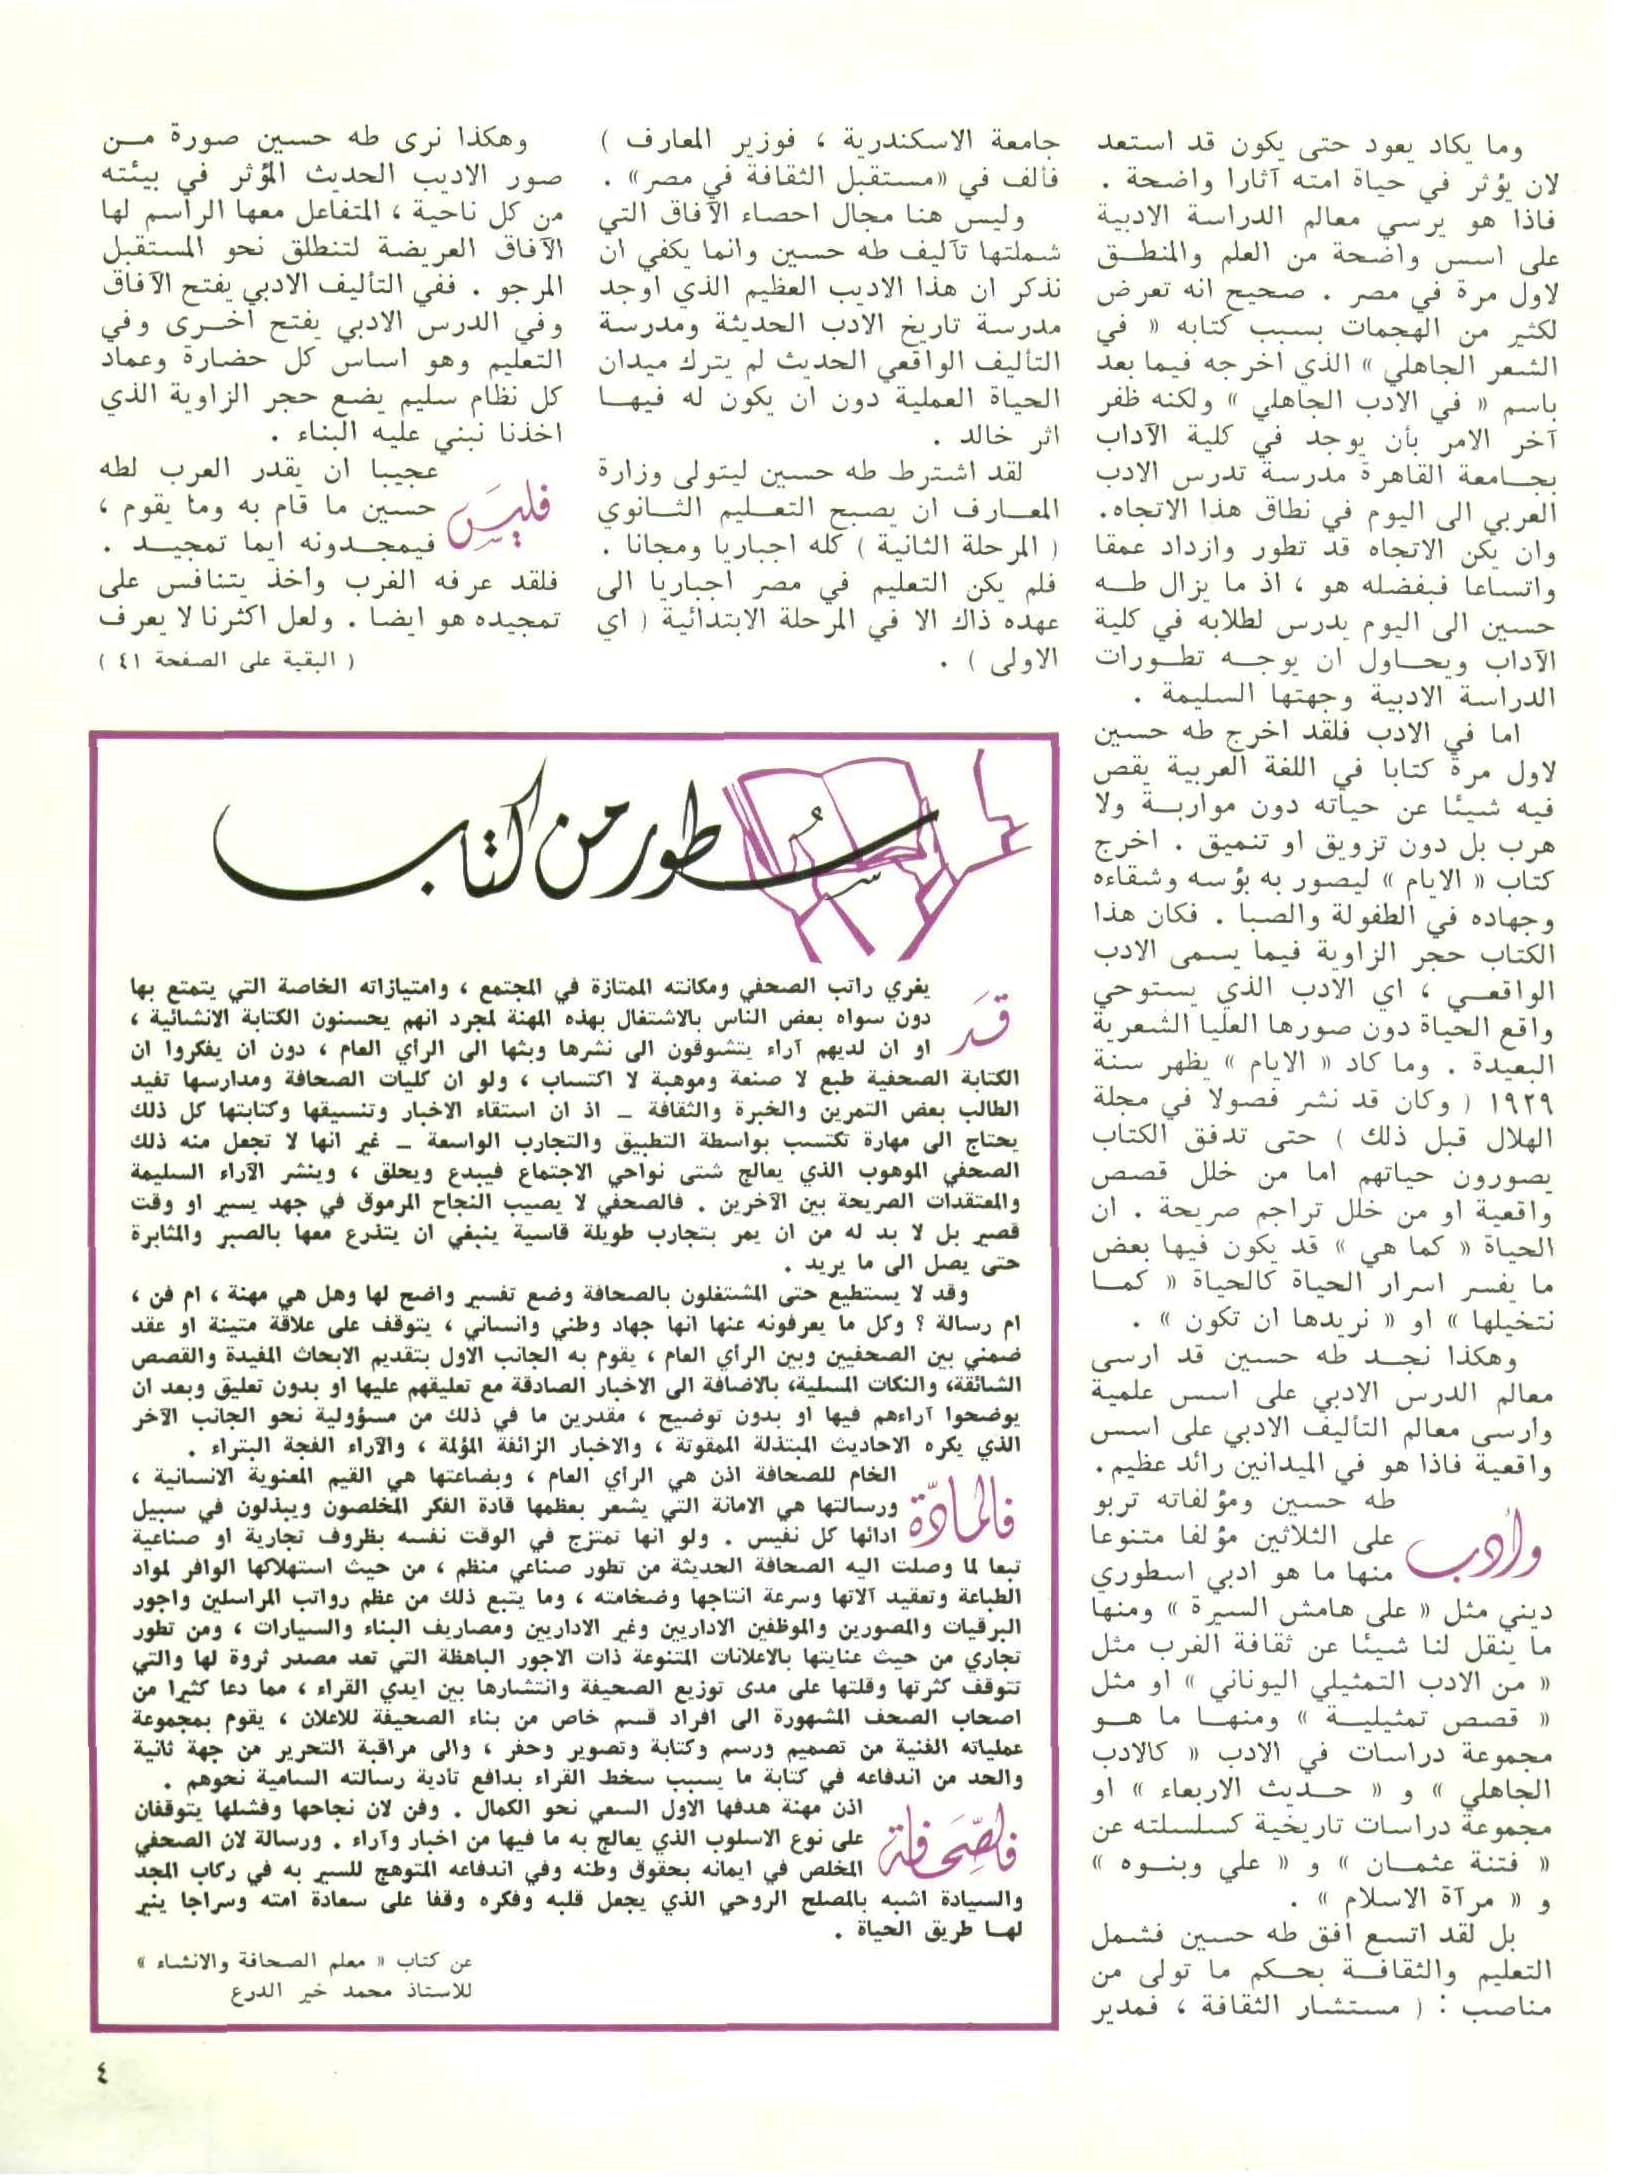 وما يكاد يعود حتى يكون قد استعد
لان يؤثر في حياة امته آثارا واضحة .
فاذا هو يرسي معالم الدراسة الادبية
على اسس واضحة من العلم والمنطق
لاول مرة في مصر . صحيح انه تعرض
لكثير من الهجمات بسبب كتابه « في
الشعر الجاهلي » الذي اخرجه فيما بعد
باسم « في الادب الجاهلي » ولكنه ظفر
آخر الامر بأن يوجد في كلية الآداب
بجامعة القاهرة مدرسة تدرس الادب
العربي الى اليوم في نطاق هذا الاتجاه.
وان يكن الاتجاه قد تطور وازداد عمقا
واتساعا فبفضله هو ، اذ ما يزال طه
حسين الى اليوم يدرس لطلابه في كلية
الآداب ويحاول ان يوجه تطورات
الدراسة الادبية وجهتها السليمة .
اما في الادب فلقد اخرج طه حسين
لاول مرة كتابا في اللغة العربية يقص
فيه شيئا عن حياته دون مواربة ولا
هرب بل دون تزويق او تنميق . اخرج
كتاب « الايام » ليصور به بؤسه وشقاءه
وجهاده في الطفولة والصبا . فكان هذا
الكتاب حجر الزاوية فيما يسمى الادب
الواقعي ، اي الادب الذي يستوحي
واقع الحياة دون صورها العليا الشعرية
البعيدة . وما كاد « الايام » يظهر سنة
١٩٢٩ ( وكان قد نشر فصولا في مجلة
الهلال قبل ذلك ) حتى تدفق الكتاب
يصورون حياتهم اما من خلل قصص
واقعية او من خلل تراجم صريحة . ان
الحياة « كما هي » قد يكون فيها بعض
ما يفسر اسرار الحياة كالحياة « كما
نتخيلها » او « نريدها ان تكون » .
وهكذا نجد طه حسين قد ارسى
معالم الدرس الادبي على اسس علمية
وارسى معالم التأليف الادبي على اسس
واقعية فاذا هو في الميدانين رائد عظيم.
وأدب طه حسين ومؤلفاته تربو
على الثلاثين مؤلفا متنوعا
منها ما هو ادبي اسطوري
ديني مثل « على هامش السيرة » ومنها
ما ينقل لنا شيئا عن ثقافة الغرب مثل
« من الادب التمثيلي اليوناني » او مثل
« قصص تمثيلية » ومنها ما هو
مجموعة دراسات في الادب « كالادب
الجاهلي » و « حديث الاربعاء » او
مجموعة دراسات تاريخية كسلسلته عن
« فتنة عثمان » و « علي وبنوه »
و « مرآة الاسلام » .
بل لقد اتسع افق طه حسين فشمل
التعليم والثقافة بحكم ما تولى من
مناصب : ( مستشار الثقافة ، فمدير
جامعة الاسكندرية ، فوزير المعارف )
فألف في «مستقبل الثقافة في مصر» .
وليس هنا مجال احصاء الآفاق التي
شملتها تآليف طه حسين وانما يكفي ان
نذكر ان هذا الاديب العظيم الذي اوجد
مدرسة تاريخ الادب الحديثة ومدرسة
التأليف الواقعي الحديث لم يترك ميدان
الحياة العملية دون ان يكون له فيها
اثر خالد .
لقد اشترط طه حسين ليتولى وزارة
المعارف ان يصبح التعليم الثانوي
( المرحلة الثانية ) كله اجباريا ومجانا .
فلم يكن التعليم في مصر اجباريا الى
عهده ذاك الا في المرحلة الابتدائية ( اي
الاولى ) .
وهكذا نرى طه حسين صورة من
صور الاديب الحديث المؤثر في بيئته
من كل ناحية ، المتفاعل معها الراسم لها
الآفاق العريضة لتنطلق نحو المستقبل
المرجو . ففي التأليف الادبي يفتح الآفاق
وفي الدرس الادبي يفتح اخرى وفي
التعليم وهو اساس كل حضارة وعماد
كل نظام سليم يضع حجر الزاوية الذي
اخذنا نبني عليه البناء .
فليس عجيبا ان يقدر العرب لطه
حسين ما قام به وما يقوم ،
فيمجدونه ايما تمجيد .
فلقد عرفه الغرب واخذ يتنافس على
تمجيده هو ايضا . ولعل اكثرنا لا يعرف
( البقية على الصفحة ٤١ )
سطور من كتاب
قد يغري راتب الصحفي ومكانته الممتازة في المجتمع ، وامتيازاته الخاصة التي يتمتع بها
دون سواه بعض الناس بالاشتغال بهذه المهنة لمجرد انهم يحسنون الكتابة الانشائية ،
او ان لديهم آراء يتشوقون الى نشرها وبثها الى الرأي العام ، دون ان يفكروا ان
الكتابة الصحفية طبع لا صنعة وموهبة لا اكتساب ، ولو ان كليات الصحافة ومدارسها تفيد
الطالب بعض التمرين والخبرة والثقافة – اذ ان استقاء الاخبار وتنسيقها وكتابتها كل ذلك
يحتاج الى مهارة تكتسب بواسطة التطبيق والتجارب الواسعة – غير انها لا تجعل منه ذلك
الصحفي الموهوب الذي يعالج شتى نواحي الاجتماع فيبدع ويحلق ، وينشر الآراء السليمة
والمعتقدات الصريحة بين الآخرين . فالصحفي لا يصيب النجاح المرموق في جهد يسير او وقت
قصير بل لا بد له من ان يمر بتجارب طويلة قاسية ينبغي ان يتذرع معها بالصبر والمثابرة
حتى يصل الى ما يريد .
وقد لا يستطيع حتى المشتغلون بالصحافة وضع تفسير واضح لها وهل هي مهنة ، ام فن ،
ام رسالة ؟ وكل ما يعرفونه عنها انها جهاد وطني وانساني ، يتوقف على علاقة متينة او عقد
ضمني بين الصحفيين وبين الرأي العام ، يقوم به الجانب الاول بتقديم الابحاث المفيدة والقصص
الشائقة، والنكات المسلية، بالاضافة الى الاخبار الصادقة مع تعليقهم عليها او بدون تعليق وبعد ان
يوضحوا آراءهم فيها او بدون توضيح ، مقدرين ما في ذلك من مسؤولية نحو الجانب الآخر
الذي يكره الاحاديث المبتذلة الممقوتة ، والاخبار الزائفة المؤلمة ، والآراء الفجة البتراء .
فالمادة الخام للصحافة اذن هي الرأي العام ، وبضاعتها هي القيم المعنوية الانسانية ،
ورسالتها هي الامانة التي يشعر بعظمها قادة الفكر المخلصون ويبذلون في سبيل
ادائها كل نفيس . ولو انها تمتزج في الوقت نفسه بظروف تجارية او صناعية
تبعا لما وصلت اليه الصحافة الحديثة من تطور صناعي منظم ، من حيث استهلاكها الوافر لمواد
الطباعة وتعقيد آلاتها وسرعة انتاجها وضخامته ، وما يتبع ذلك من عظم رواتب المراسلين واجور
البرقيات والمصورين والموظفين الاداريين وغير الاداريين ومصاريف البناء والسيارات ، ومن تطور
تجاري من حيث عنايتها بالاعلانات المتنوعة ذات الاجور الباهظة التي تعد مصدر ثروة لها والتي
تتوقف كثرتها وقلتها على مدى توزيع الصحيفة وانتشارها بين ايدي القراء ، مما دعا كثيرا من
اصحاب الصحف المشهورة الى افراد قسم خاص من بناء الصحيفة للاعلان ، يقوم بمجموعة
عملياته الفنية من تصميم ورسم وكتابة وتصوير وحفر ، والى مراقبة التحرير من جهة ثانية
والحد من اندفاعه في كتابة ما يسبب سخط القراء بدافع تأدية رسالته السامية نحوهم .
فالصحافة اذن مهنة هدفها الاول السعي نحو الكمال . وفن لان نجاحها وفشلها يتوقفان
على نوع الاسلوب الذي يعالج به ما فيها من اخبار وآراء . ورسالة لان الصحفي
المخلص في ايمانه بحقوق وطنه وفي اندفاعه المتوهج للسير به في ركاب المجد
والسيادة اشبه بالمصلح الروحي الذي يجعل قلبه وفكره وقفا على سعادة امته وسراجا ينير
لها طريق الحياة .
عن كتاب « معلم الصحافة والانشاء »
للاستاذ محمد خير الدرع
٤